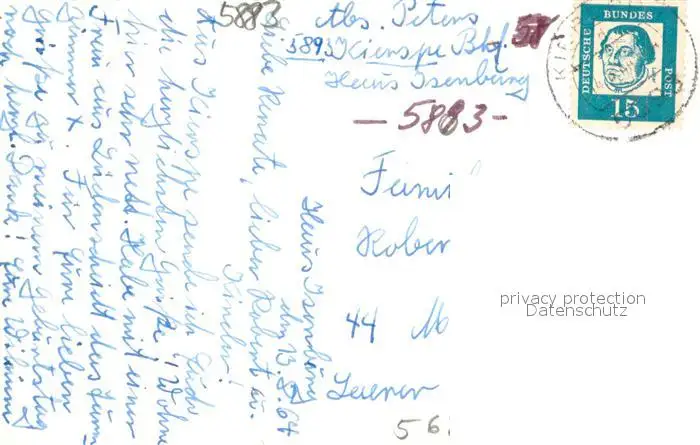 5883
Abs. Peters
5893 Kierspe Bhf.
Haus Isenburg
58
— 5883 —
DEUTSCHE
BUNDES
POST
15
Fami
Rober
44 M
56
Haus Isenburg
den 13. 64
Liebe Renate, lieber Robert u.
Kinder!
Aus Kierspe sende ich Euch
die herzlichsten Grüße! Wohne
hier sehr nett. Habe mit einer
Frau aus Lüdenscheid das
Zimmer x. Für Eure lieben
Grüße zu meinem Geburtstag
noch herzl. Dank! Eure
privacy protection
Datenschutz